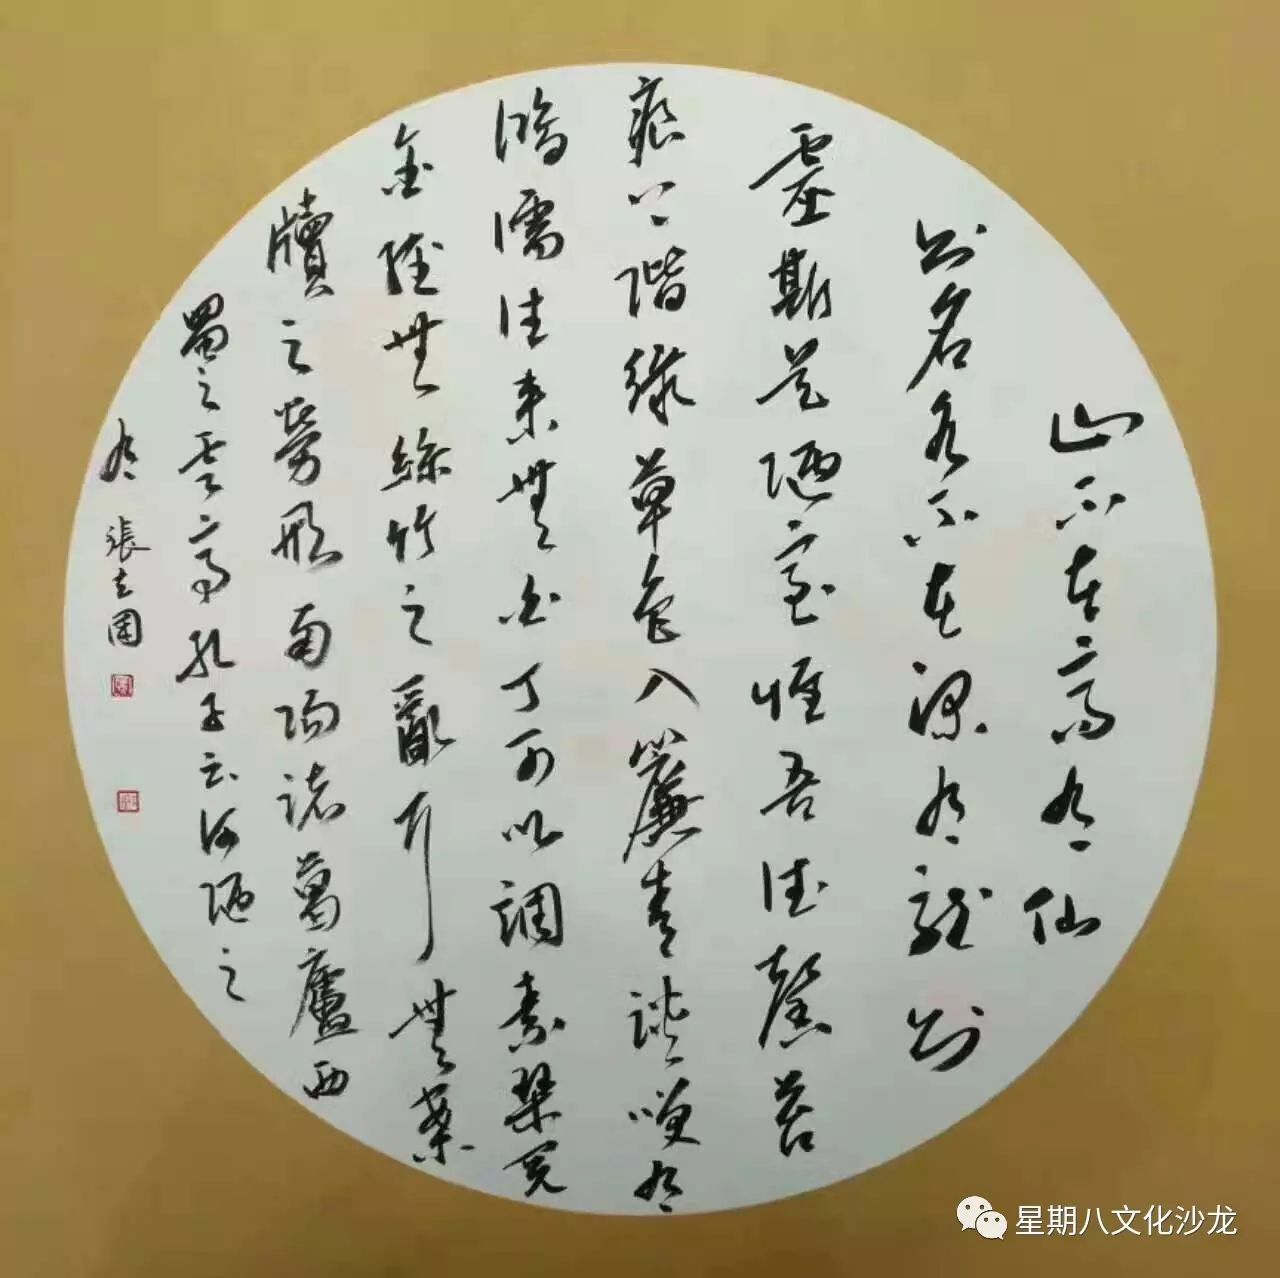 山不在高有仙
则名水不在深有龙则
靈斯是陋室惟吾德馨苔
痕上階綠草色入簾青談笑有
鴻儒往来無白丁可以調素琴閲
金經無絲竹之亂耳無案
牘之勞形南陽諸葛廬西
蜀之雲亭孔子云何陋之
有 張
星期八文化沙龙